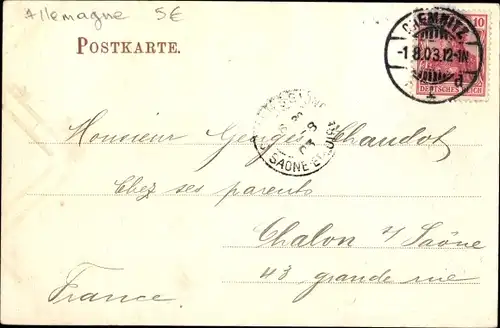 Allemagne 5€
POSTKARTE.
CHEMNITZ
-1.8.03.12-1N
d
10
DEUTSCHES REICH
SAONE-ET-LOIRE
Monsieur Georges Chaudot
Chez ses parents
Chalon s/ Saône
43 grande rue
France.